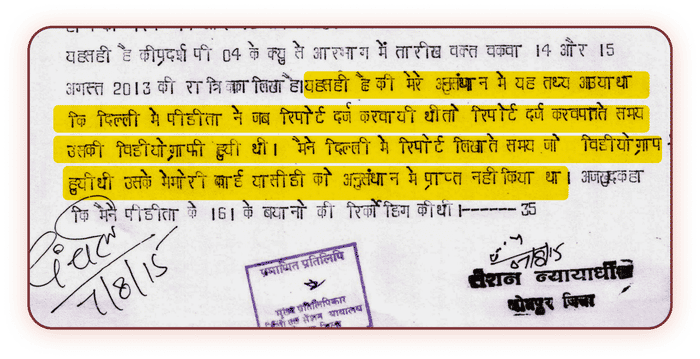 यहसही है कीप्रदर्श पी 04 के क्यु से आरभाग में तारीख वक्त वकवा 14 और 15
अगस्त 2013 की रात्रि का लिखा है। यहसही है की मेरे अनुसंधान मे यह तथ्य आयाथा
कि दिल्ली मे पीडीता ने जब रिपोर्ट दर्ज करवायी थीतो रिपोर्ट दर्ज करवपाते समय
उसकी विडीयोग्राफी हुयी थी। मैने दिल्ली मे रिपोर्ट लिखाते समय जो विडीयोग्राप
हुयीथी उसके मेमोरी कार्ड यासीडी को अनुसंधान मे प्राप्त नहीं किया था। अजखुदकहा
कि मैने पीडीता के 161 के बयानो की रिकोर्डिग कीथी।------35
7/8/15
7/8/15
प्रमाणित प्रतिलिपि
मुख्य प्रतिलिपिकार
सेशन न्यायाधीश
जोधपुर जिला